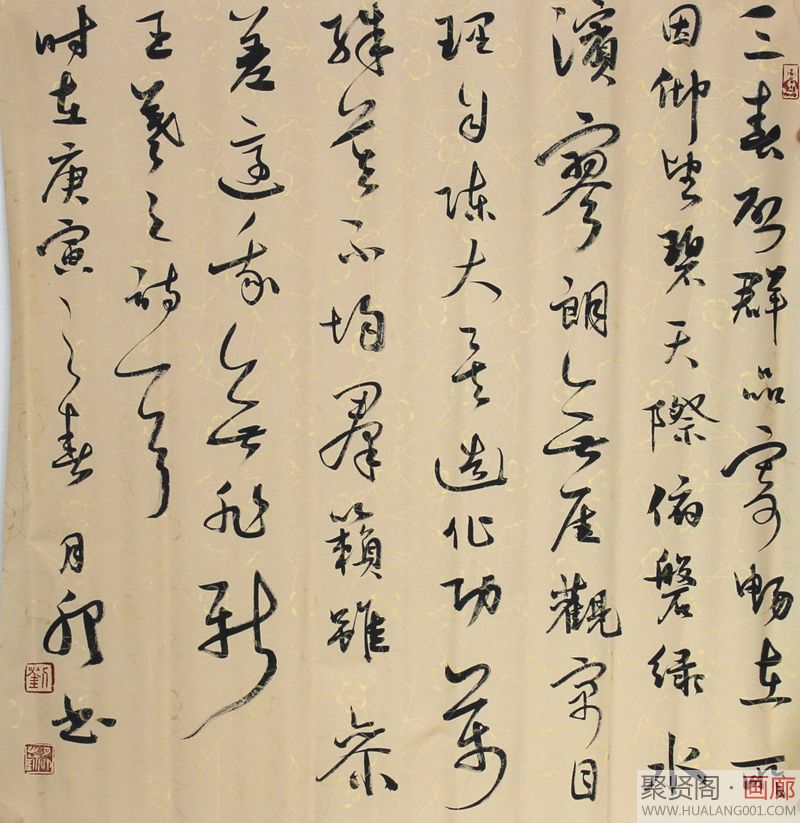 三春啟群品寄畅在所
因仰望碧天際俯磐绿水
濱寥朗無厓觀寓目
理自陳大矣造化功萬
殊莫不均羣籟雖參
差適我無非新
王羲之詩一首
时在庚寅之春月书
聚贤阁·画廊
WWW.HUALANG001.COM